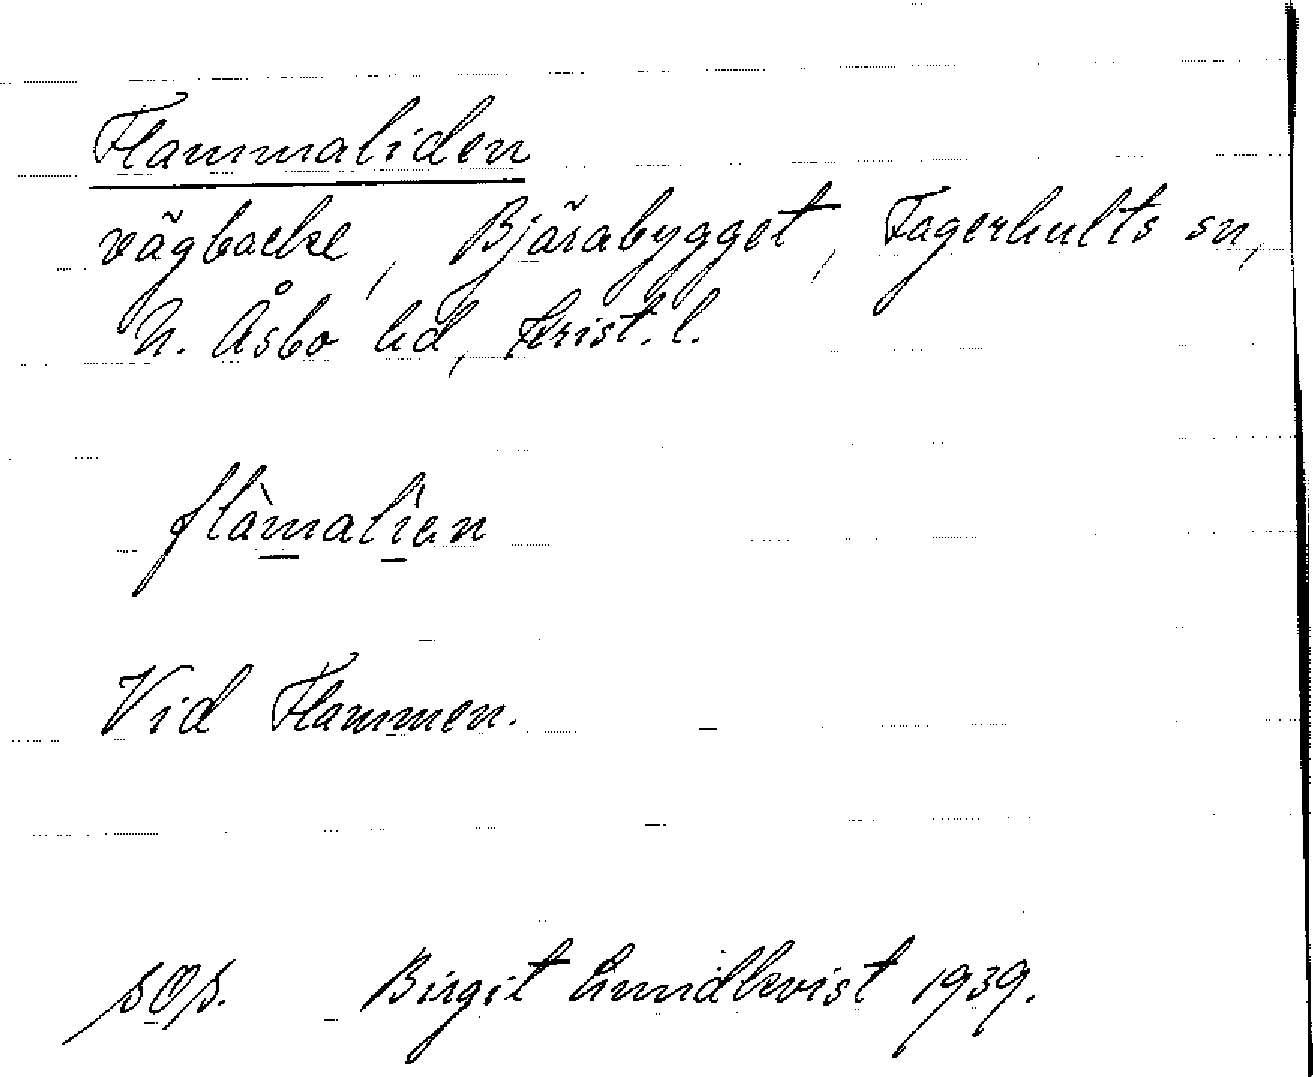 Flammaliden
vägbacke, Bjärabygget, Fagerhults sn,
N. Åsbo hd, Krist. l.
flàmalìen
Vid Flammen.
Birgit Lundkvist 1939.